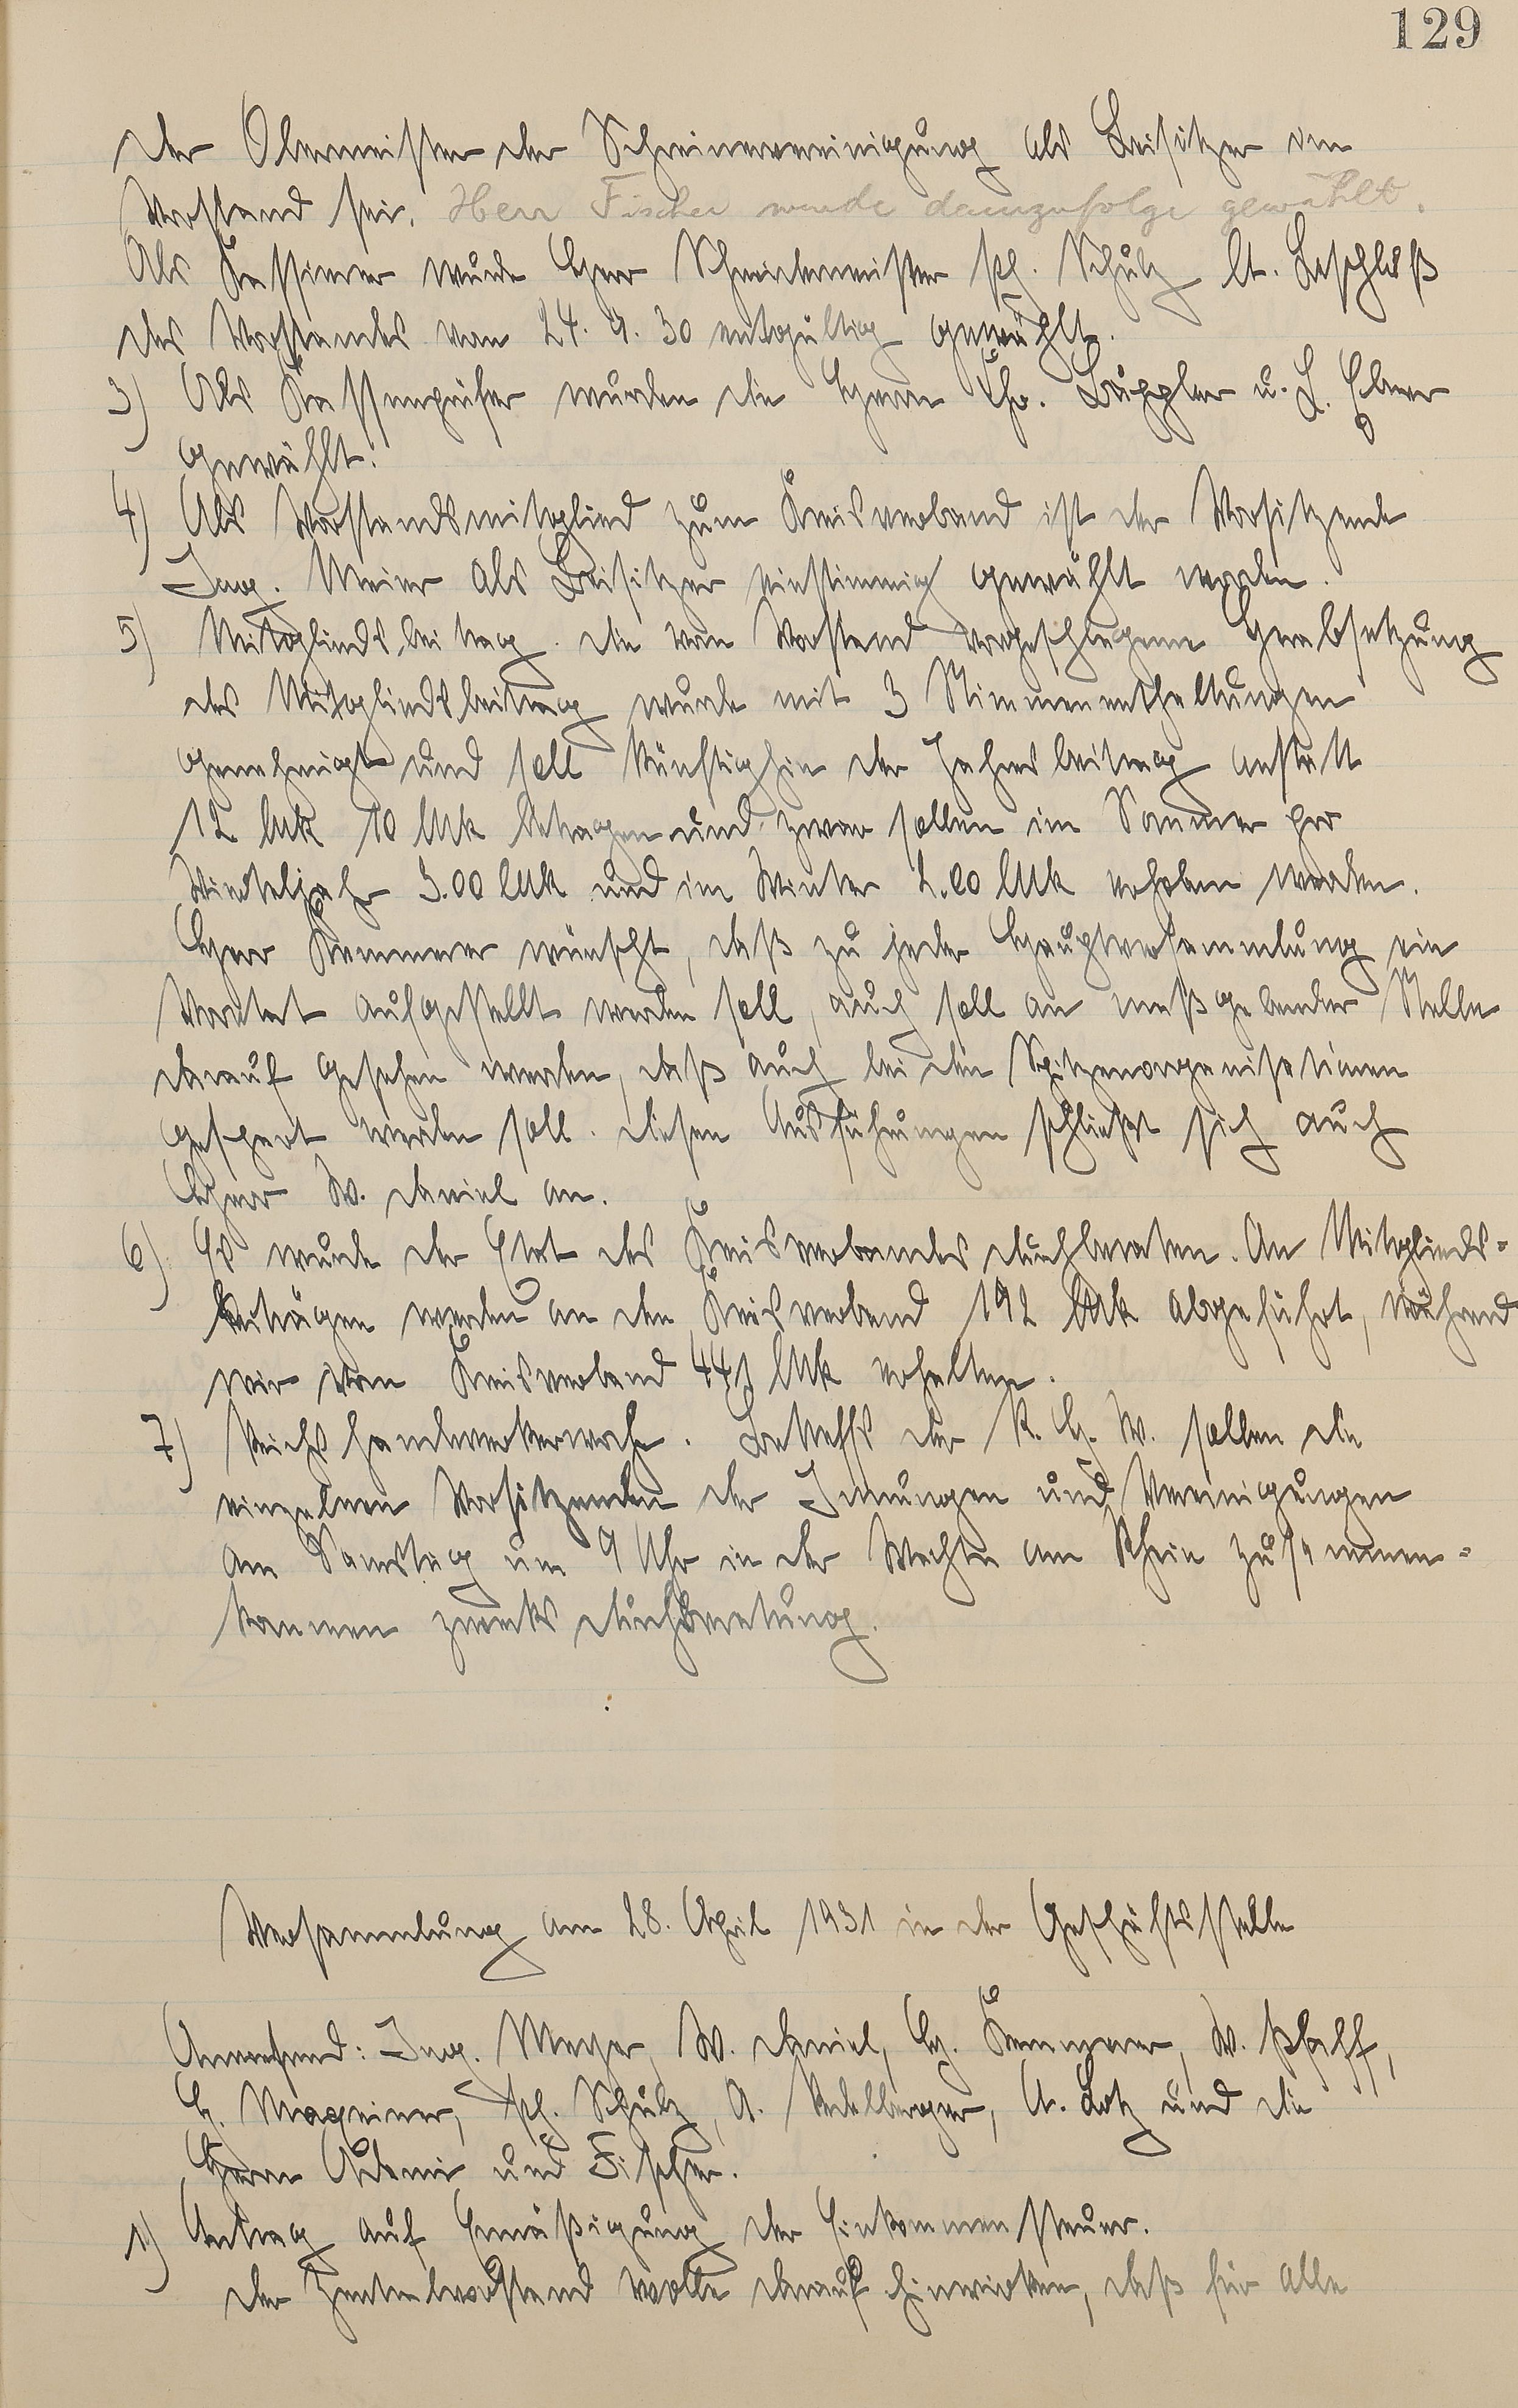 129
der Obermeister der Schreinervereinigung als Beisitzer im
Vorstand sei. Herr Fischer wurde demzufolge gewählt.
Als Kassierer wurde Herr Schneidermeister Ph. Schulz lt. Beschluß
des Vorstandes vom 24. 9. 30 entgültig gewählt.
3) Als Kassenprüfer wurden die Herrn Chr. Däppler u. L. Ebner
gewählt.
4) Als Vorstandsmitglied zum Kreisverband ist der Vorsitzende
Ing. Meier als Beisitzer einstimmig gewählt worden.
5) Mitgliedsbeitrag. die vom Vorstand vorgeschlagene Herabsetzung
des Mitgliedsbeitrag wurde mit 3 Stimmenenthaltungen
genehmigt und soll künftighin der Jahresbeitrag anstatt
12 Mk 10 Mk betragen und zwar sollen im Sommer pro
Vierteljahr 3.00 Mk und im Winter 2.00 Mk erhoben werden.
Herr Kemmerer wünscht, daß zu jeder Hauptversammlung ein
Voretat aufgestellt werden soll, auch soll an maßgebender Stelle
darauf gesehen werden, daß auch bei den Spitzenorganisationen
gespart werden soll. diesen Ausführungen schließt sich auch
Herr W. Daniel an.
6) Es wurde der Etat des Kreisverbandes durchberaten. An Mitglieds-
beiträgen werden an den Kreisverband 192 Mk abgeführt, während
wir vom Kreisverband 441 Mk erhalten.
7) Reichshandwerkerwoche. Betreffs der R. H. W. sollen die
einzelnen Vorsitzenden der Innungen und Vereinigungen
am Samstag um 9 Uhr in der Wacht am Rhein zusammen-
kommen zwecks durchberatung.
Versammlung am 28. April 1931 in der Geschäftsstelle
Anwesend: Ing. Meyer, W. Daniel, H. Kemmerer, W. Pfaff,
H. Magsiner, Ph. Schulz, A. Nedelberger, A. Lotz und die
Herrn Adami und Fischer.
1) Antrag auf Ermäßigung der Einkommensteuer.
der Zentralvorstand wolle darauf hinwirken, daß für alle